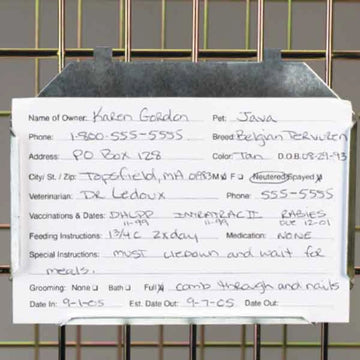 Name of Owner: Karen Gordon Pet: Java
Phone: 1-800-555-5555 Breed: Belgian Tervuren
Address: PO Box 128 Color: Tan D.O.B. 08-29-93
City/ St. / Zip: Topsfield, MA 01983 M F Neutered Spayed
Veterinarian: Dr Ledoux Phone: 555-5555
Vaccinations & Dates: DHLPP 11-99 INTRATRAC II 11-99 RABIES DUE 12-01
Feeding Instructions: 1 3/4 C 2x day Medication: NONE
Special Instructions: must liedown and wait for
meals.
Grooming: None Bath Full comb through and nails
Date In: 9-1-05 Est. Date Out: 9-7-05 Date Out: